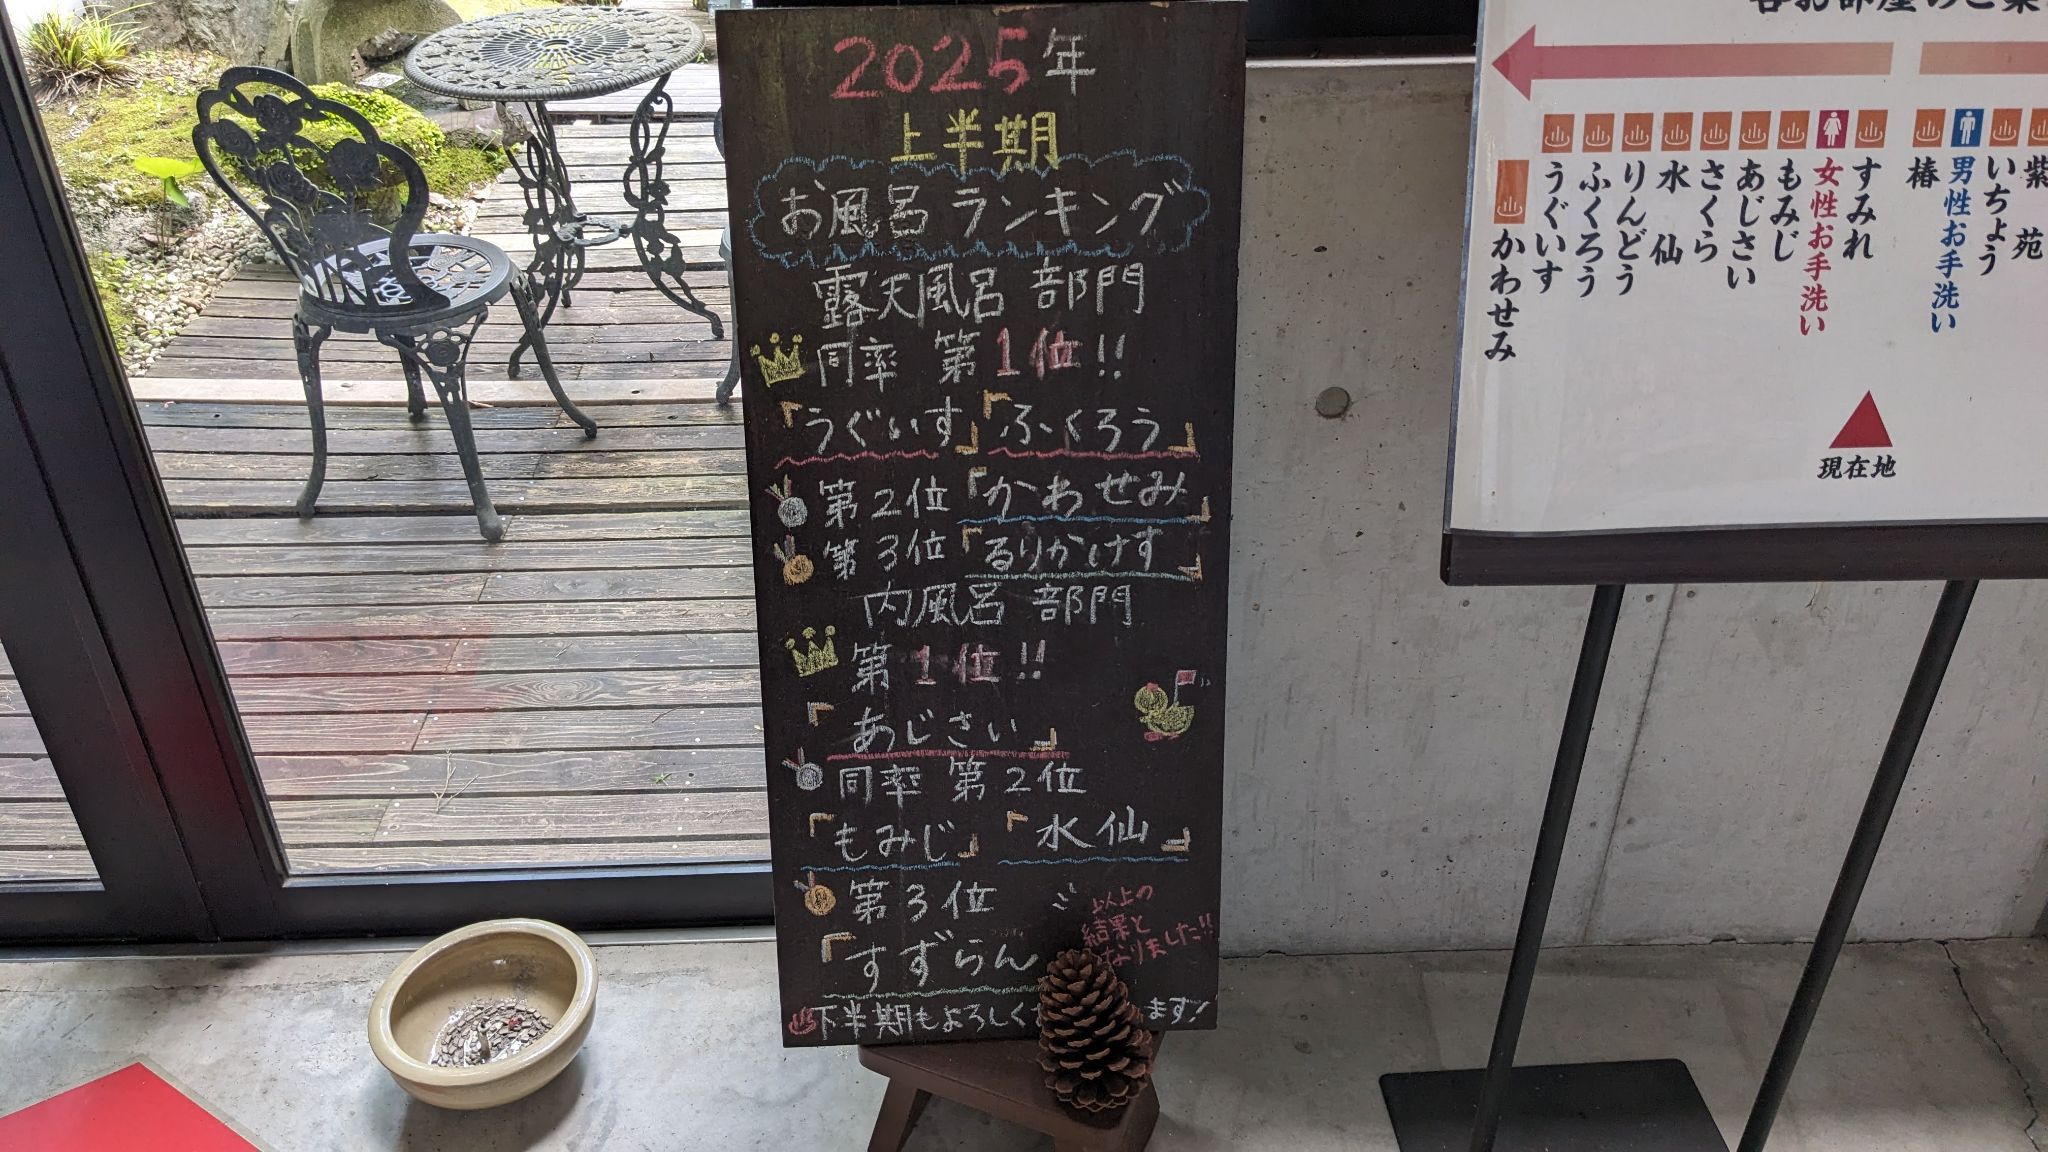 2025年
上半期
お風呂ランキング
露天風呂 部門
同率 第1位!!
『うぐいす』『ふくろう』
第2位『かわせみ』
第3位『るりかけす』
内風呂 部門
第1位!!
『あじさい』
同率 第2位
『もみじ』『水仙』
第3位
『すずらん
以上の
結果と
なりました!!
下半期もよろしく
ます!
すみれ
女性お手洗い
もみじ
あじさい
さくら
水仙
りんどう
ふくろう
うぐいす
かわせみ
紫苑
いちょう
男性お手洗い
椿
現在地